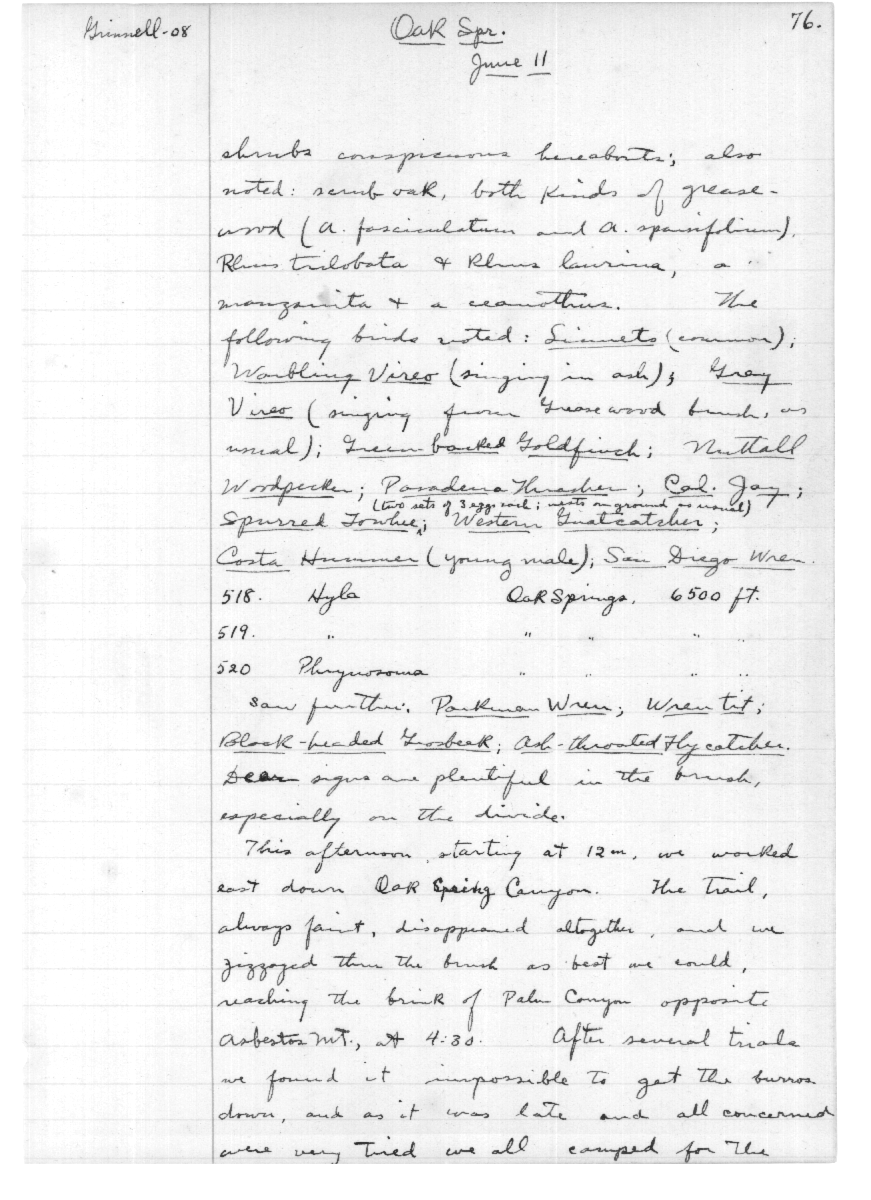 Grinnell-08
Oak Spr.
76.
June 11
shrubs conspicuous hereabouts; also
noted: scrub oak, both kinds of grease-
wood (A. fasciculatum and A. sparsifolium),
Rhus trilobata & Rhus laurina, a
manzanita & a ceanothus. The
following birds noted: Linnets (common);
Warbling Vireo (singing in ash); Gray
Vireo (singing from greasewood brush, as
usual); Green-backed Goldfinch; Nuttall
Woodpecker; Pasadena Thrasher; Cal. Jay;
(two sets of 3 eggs each; nests on ground as usual)
Spurred Towhee; Western Gnatcatcher;
Costa Hummer (young male); San Diego Wren.
518. Hyla Oak Springs, 6500 ft.
519. " " " " "
520 Phrynosoma " " " "
Saw further: Parkman Wren; Wren-tit;
Black-headed Grosbeak; Ash-throated Flycatcher.
Deer signs are plentiful in the brush,
especially on the divide.
This afternoon, starting at 12 m, we worked
east down Oak Spring Canyon. The trail,
always faint, disappeared altogether, and we
zizzaged thru the brush as best we could,
reaching the brink of Palm Canyon opposite
Asbestos Mt., at 4:30. After several trials
we found it impossible to get the burros
down, and as it was late and all concerned
were very tired we all camped for the